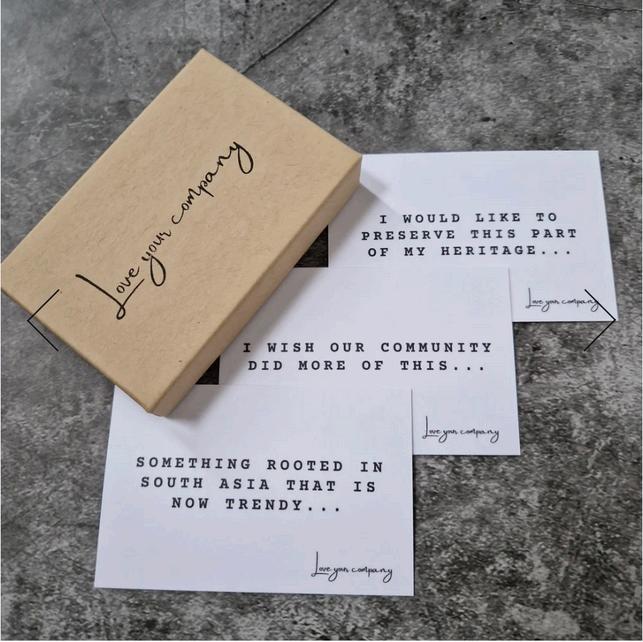 Love your company
I WOULD LIKE TO
PRESERVE THIS PART
OF MY HERITAGE...
Love your company
I WISH OUR COMMUNITY
DID MORE OF THIS...
Love your company
SOMETHING ROOTED IN
SOUTH ASIA THAT IS
NOW TRENDY...
Love your company